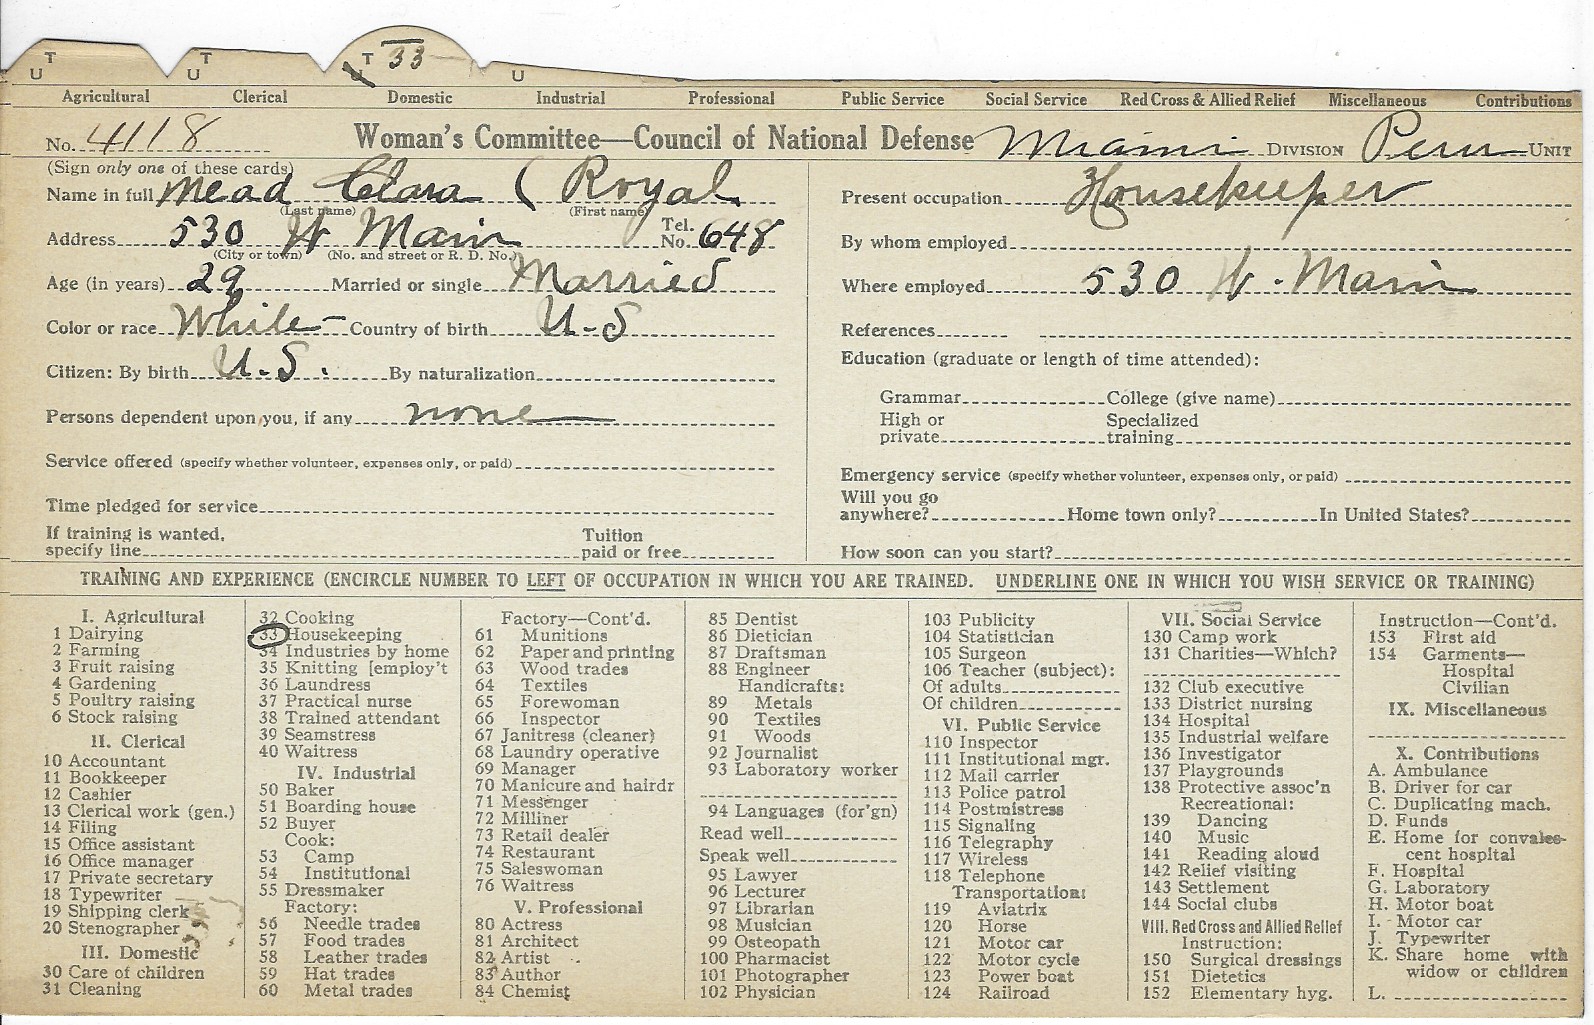 T T T 33
U U U U
Agricultural Clerical Domestic Industrial Professional Public Service Social Service Red Cross & Allied Relief Miscellaneous Contributions
No. 4118 Woman's Committee—Council of National Defense Miami DIVISION Peru UNIT
(Sign only one of these cards)
Name in full Mead Clara ( Royal
(Last name) (First name)
Address 530 W Main Tel. No. 648
(City or town) (No. and street or R. D. No.)
Age (in years) 29 Married or single Married
Color or race White Country of birth U-S
Citizen: By birth U.S. By naturalization
Persons dependent upon you, if any none
Service offered (specify whether volunteer, expenses only, or paid)
Time pledged for service
If training is wanted, specify line Tuition paid or free
Present occupation Housekeeper
By whom employed
Where employed 530 W. Main
References
Education (graduate or length of time attended):
Grammar College (give name)
High or private Specialized training
Emergency service (specify whether volunteer, expenses only, or paid)
Will you go anywhere? Home town only? In United States?
How soon can you start?
TRAINING AND EXPERIENCE (ENCIRCLE NUMBER TO LEFT OF OCCUPATION IN WHICH YOU ARE TRAINED. UNDERLINE ONE IN WHICH YOU WISH SERVICE OR TRAINING)
I. Agricultural
1 Dairying
2 Farming
3 Fruit raising
4 Gardening
5 Poultry raising
6 Stock raising
II. Clerical
10 Accountant
11 Bookkeeper
12 Cashier
13 Clerical work (gen.)
14 Filing
15 Office assistant
16 Office manager
17 Private secretary
18 Typewriter
19 Shipping clerk
20 Stenographer
III. Domestic
30 Care of children
31 Cleaning
32 Cooking
33 Housekeeping
34 Industries by home
35 Knitting [employ't
36 Laundress
37 Practical nurse
38 Trained attendant
39 Seamstress
40 Waitress
IV. Industrial
50 Baker
51 Boarding house
52 Buyer
Cook:
53 Camp
54 Institutional
55 Dressmaker
Factory:
56 Needle trades
57 Food trades
58 Leather trades
59 Hat trades
60 Metal trades
Factory—Cont'd.
61 Munitions
62 Paper and printing
63 Wood trades
64 Textiles
65 Forewoman
66 Inspector
67 Janitress (cleaner)
68 Laundry operative
69 Manager
70 Manicure and hairdr
71 Messenger
72 Milliner
73 Retail dealer
74 Restaurant
75 Saleswoman
76 Waitress
V. Professional
80 Actress
81 Architect
82 Artist
83 Author
84 Chemist
85 Dentist
86 Dietician
87 Draftsman
88 Engineer
Handicrafts:
89 Metals
90 Textiles
91 Woods
92 Journalist
93 Laboratory worker
94 Languages (for'gn)
Read well
Speak well
95 Lawyer
96 Lecturer
97 Librarian
98 Musician
99 Osteopath
100 Pharmacist
101 Photographer
102 Physician
103 Publicity
104 Statistician
105 Surgeon
106 Teacher (subject):
Of adults
Of children
VI. Public Service
110 Inspector
111 Institutional mgr.
112 Mail carrier
113 Police patrol
114 Postmistress
115 Signaling
116 Telegraphy
117 Wireless
118 Telephone
Transportation:
119 Aviatrix
120 Horse
121 Motor car
122 Motor cycle
123 Power boat
124 Railroad
VII. Social Service
130 Camp work
131 Charities—Which?
132 Club executive
133 District nursing
134 Hospital
135 Industrial welfare
136 Investigator
137 Playgrounds
138 Protective assoc'n
Recreational:
139 Dancing
140 Music
141 Reading aloud
142 Relief visiting
143 Settlement
144 Social clubs
VIII. Red Cross and Allied Relief
Instruction:
150 Surgical dressings
151 Dietetics
152 Elementary hyg.
Instruction—Cont'd.
153 First aid
154 Garments—
Hospital
Civilian
IX. Miscellaneous
X. Contributions
A. Ambulance
B. Driver for car
C. Duplicating mach.
D. Funds
E. Home for convales-
cent hospital
F. Hospital
G. Laboratory
H. Motor boat
I. Motor car
J. Typewriter
K. Share home with
widow or children
L.